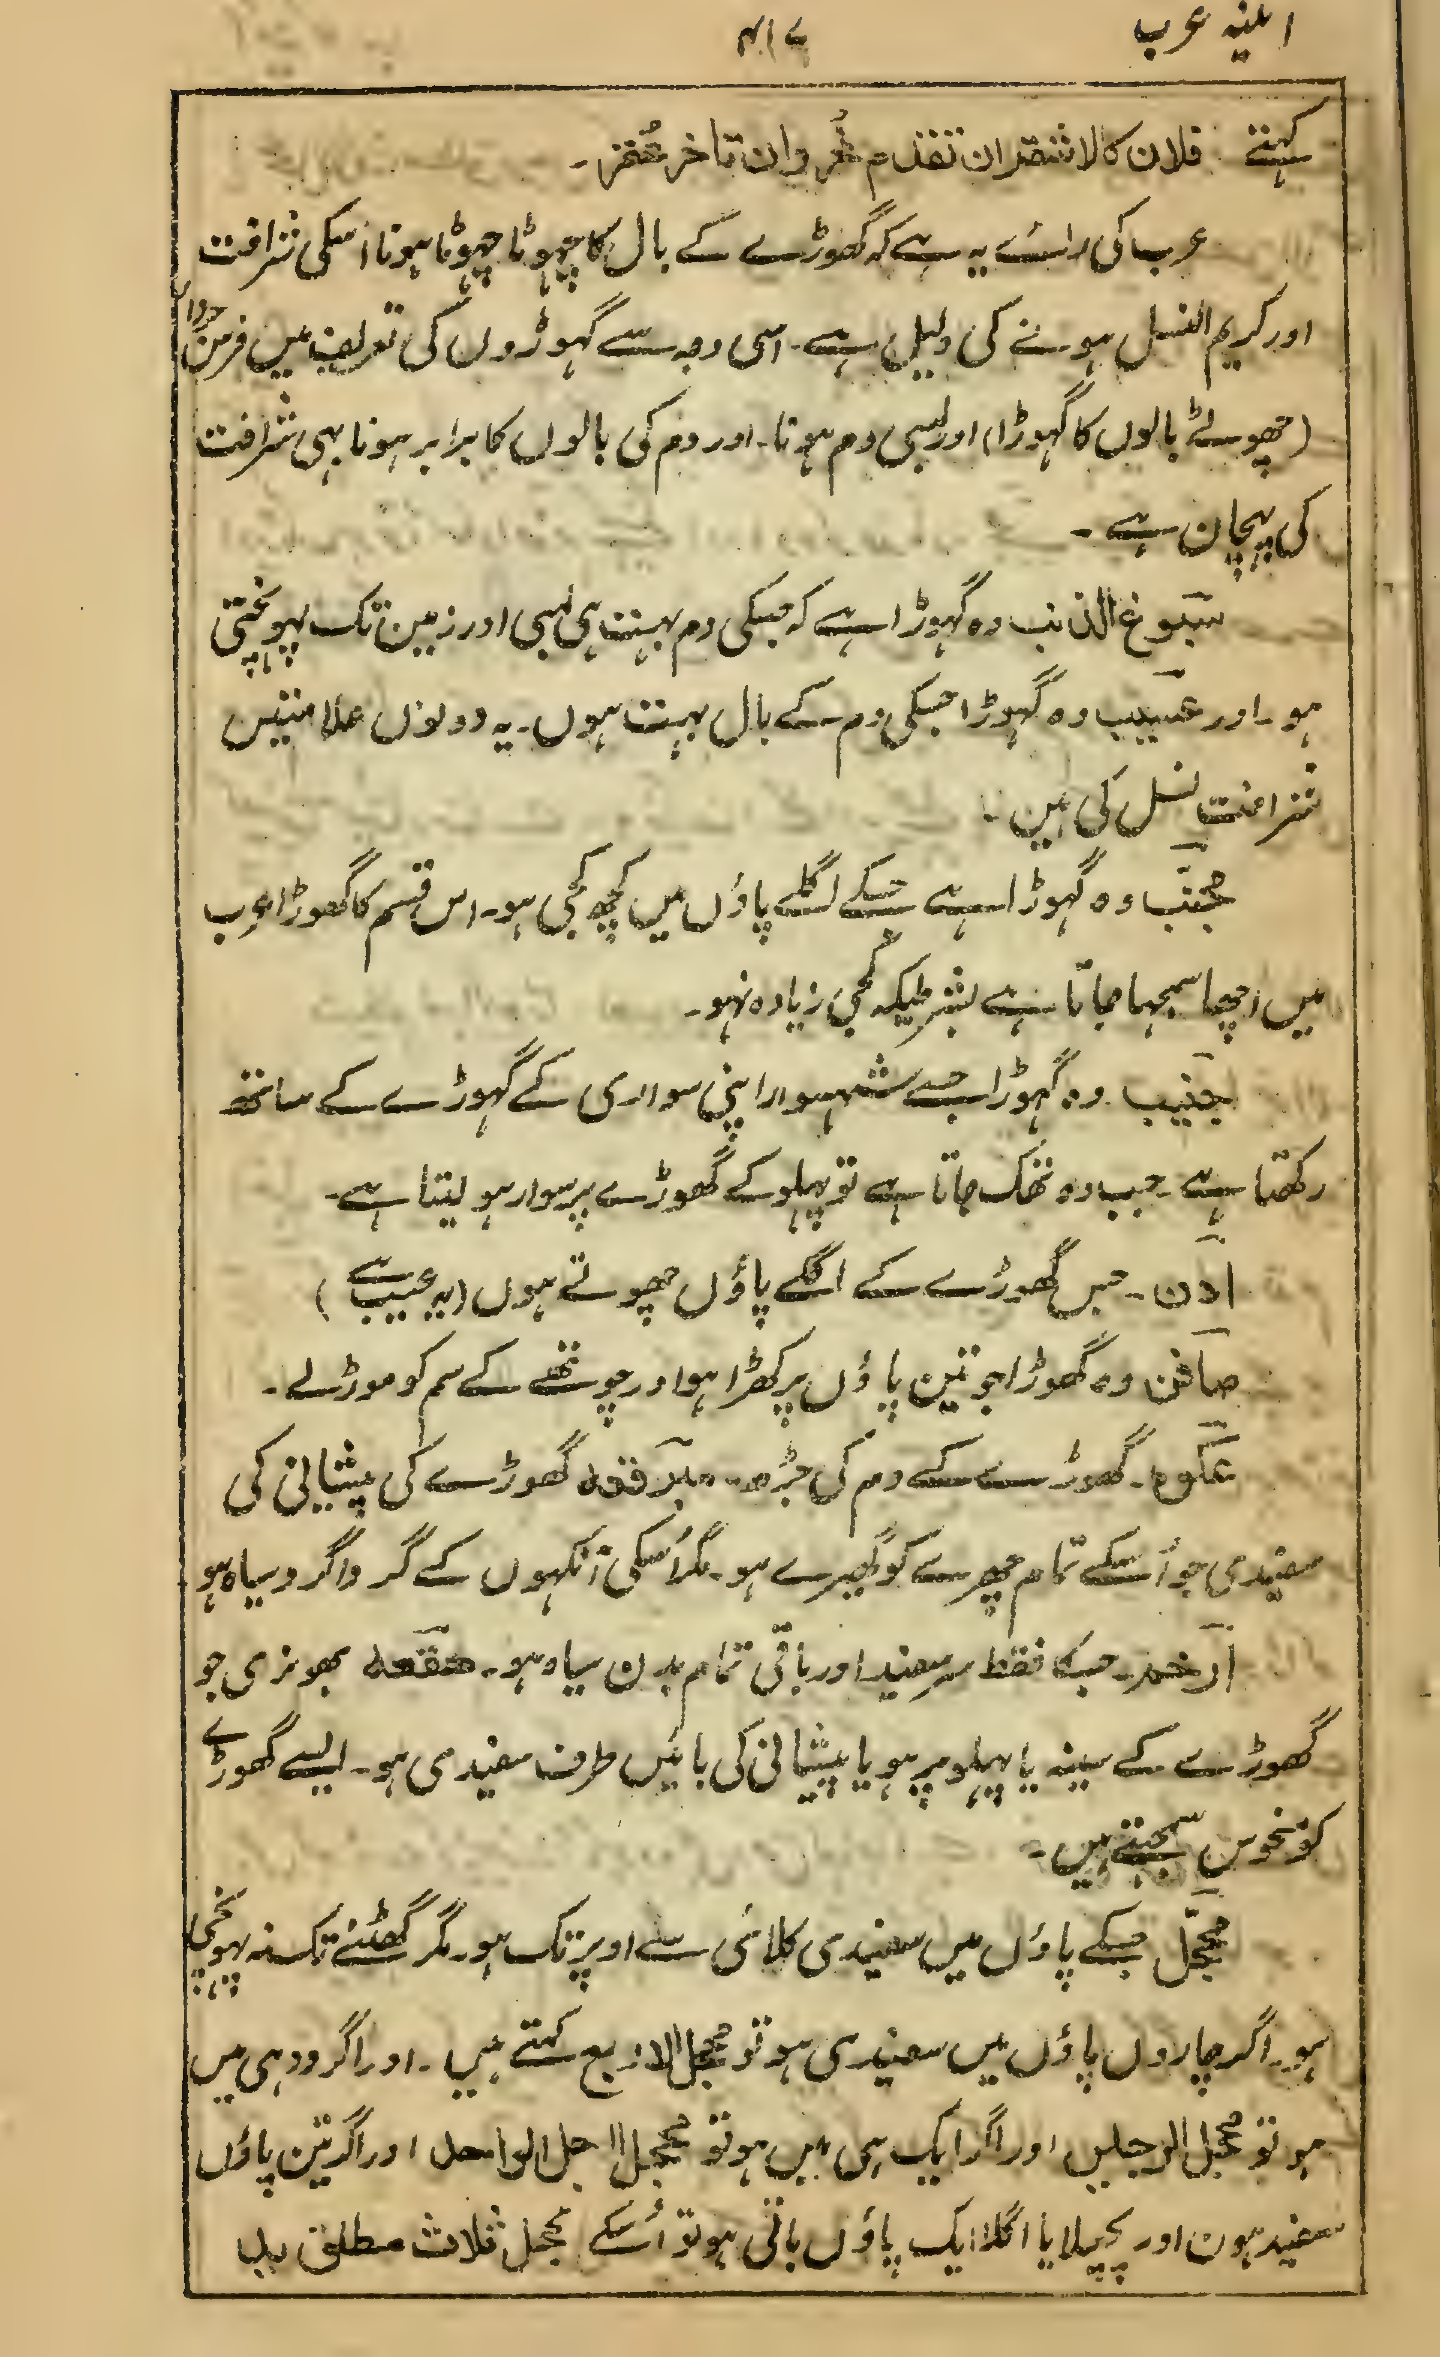 ائینہ عرب
۴۱۷
کہتے فلان کالاشقران تقدم نحر وان تاخر عقر۔
عرب کی رائے یہ ہے کہ گھوڑے کے بال کا چہوٹا چہوٹا ہونا اسکی شرافت
اور کریم النسل ہونے کی دلیل ہے۔ اسی وجہ سے گہوڑوں کی تعریف میں فرس
(چھوٹے بالوں کا گہوڑا) اور لمبی دم ہونا۔ اور دم کی بالوں کا برابر ہونا بہی شرافت
کی پہچان ہے۔
سبوغ الذنب وہ گہوڑا ہے کہ جسکی دم بہت ہی لمبی اور زمین تک پہونچتی
ہو۔ اور عسیب وہ گہوڑا جسکی دم کے بال بہت ہوں۔ یہ دونوں علامتیں
شرافت نسل کی ہیں۔
مجنّب وہ گہوڑا ہے جسکے اگلے پاؤں میں کچھ کجی ہو۔ اس قسم کا گھوڑا عرب
میں اچھا سمجہا جاتا ہے بشرطیکہ کجی زیادہ نہو۔
جنیب وہ گہوڑا جسے شہسوار اپنی سواری کے گہوڑے کے ساتھ
رکھتا ہے۔ جب وہ تھک جاتا ہے تو پہلو کے گھوڑے پر سوار ہو لیتا ہے۔
ادن۔ جس گھوڑے کے اگلے پاؤں چھوٹے ہوں (یہ عیب ہے)
صافن وہ گھوڑا جو تین پاؤں پر کھڑا ہو اور چوتھے کے سم کو موڑلے۔
عکوہ۔ گھوڑے کے دم کی جڑھ۔ مبرقعہ گھوڑے کی پیشانی کی
سفیدی جو اُسکے تمام چہرے کو گھیرے ہو۔ مگر اُسکی آنکہوں کے گرداگرد سیاہ ہو
ارخم۔ جسکا فقط سر سفید اور باقی تمام بدن سیاہ ہو۔ ھقعہ بھونری جو
گھوڑے کے سینہ یا پہلو پر ہو یا پیشانی کی بائیں طرف سفیدی ہو۔ ایسے گھوڑے
کو نحوس سمجہتے ہیں۔
محجّل جسکے پاؤں میں سفیدی کلائی سے اوپر تک ہو۔ مگر گھٹنے تک نہ پہونچی
ہو۔ اگر چاروں پاؤں میں سفیدی ہو تو محجل الاربع کہتے ہیں۔ اور اگر دو ہی میں
ہو تو محجل الرجلین اور اگر ایک ہی میں ہو تو محجل الرجل الواحدہ اور اگر تین پاؤں
سفید ہون اور پچھلا یا اگلا ایک پاؤں باقی ہو تو اُسکے محجل ثلاث مطلق